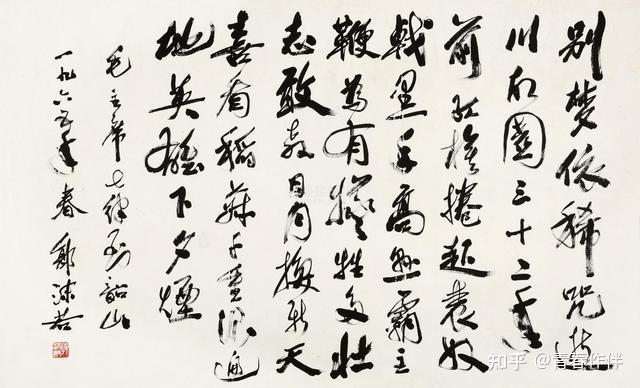 别夢依稀咒逝
川故園三十二年
前紅旗捲起農奴
戟黑手高懸霸主
鞭為有犧牲多壯
志敢教日月換新天
喜看稻菽千重浪遍
地英雄下夕煙
毛主席七律到韶山
一九六五年春 郭沫若
知乎 @青春作伴